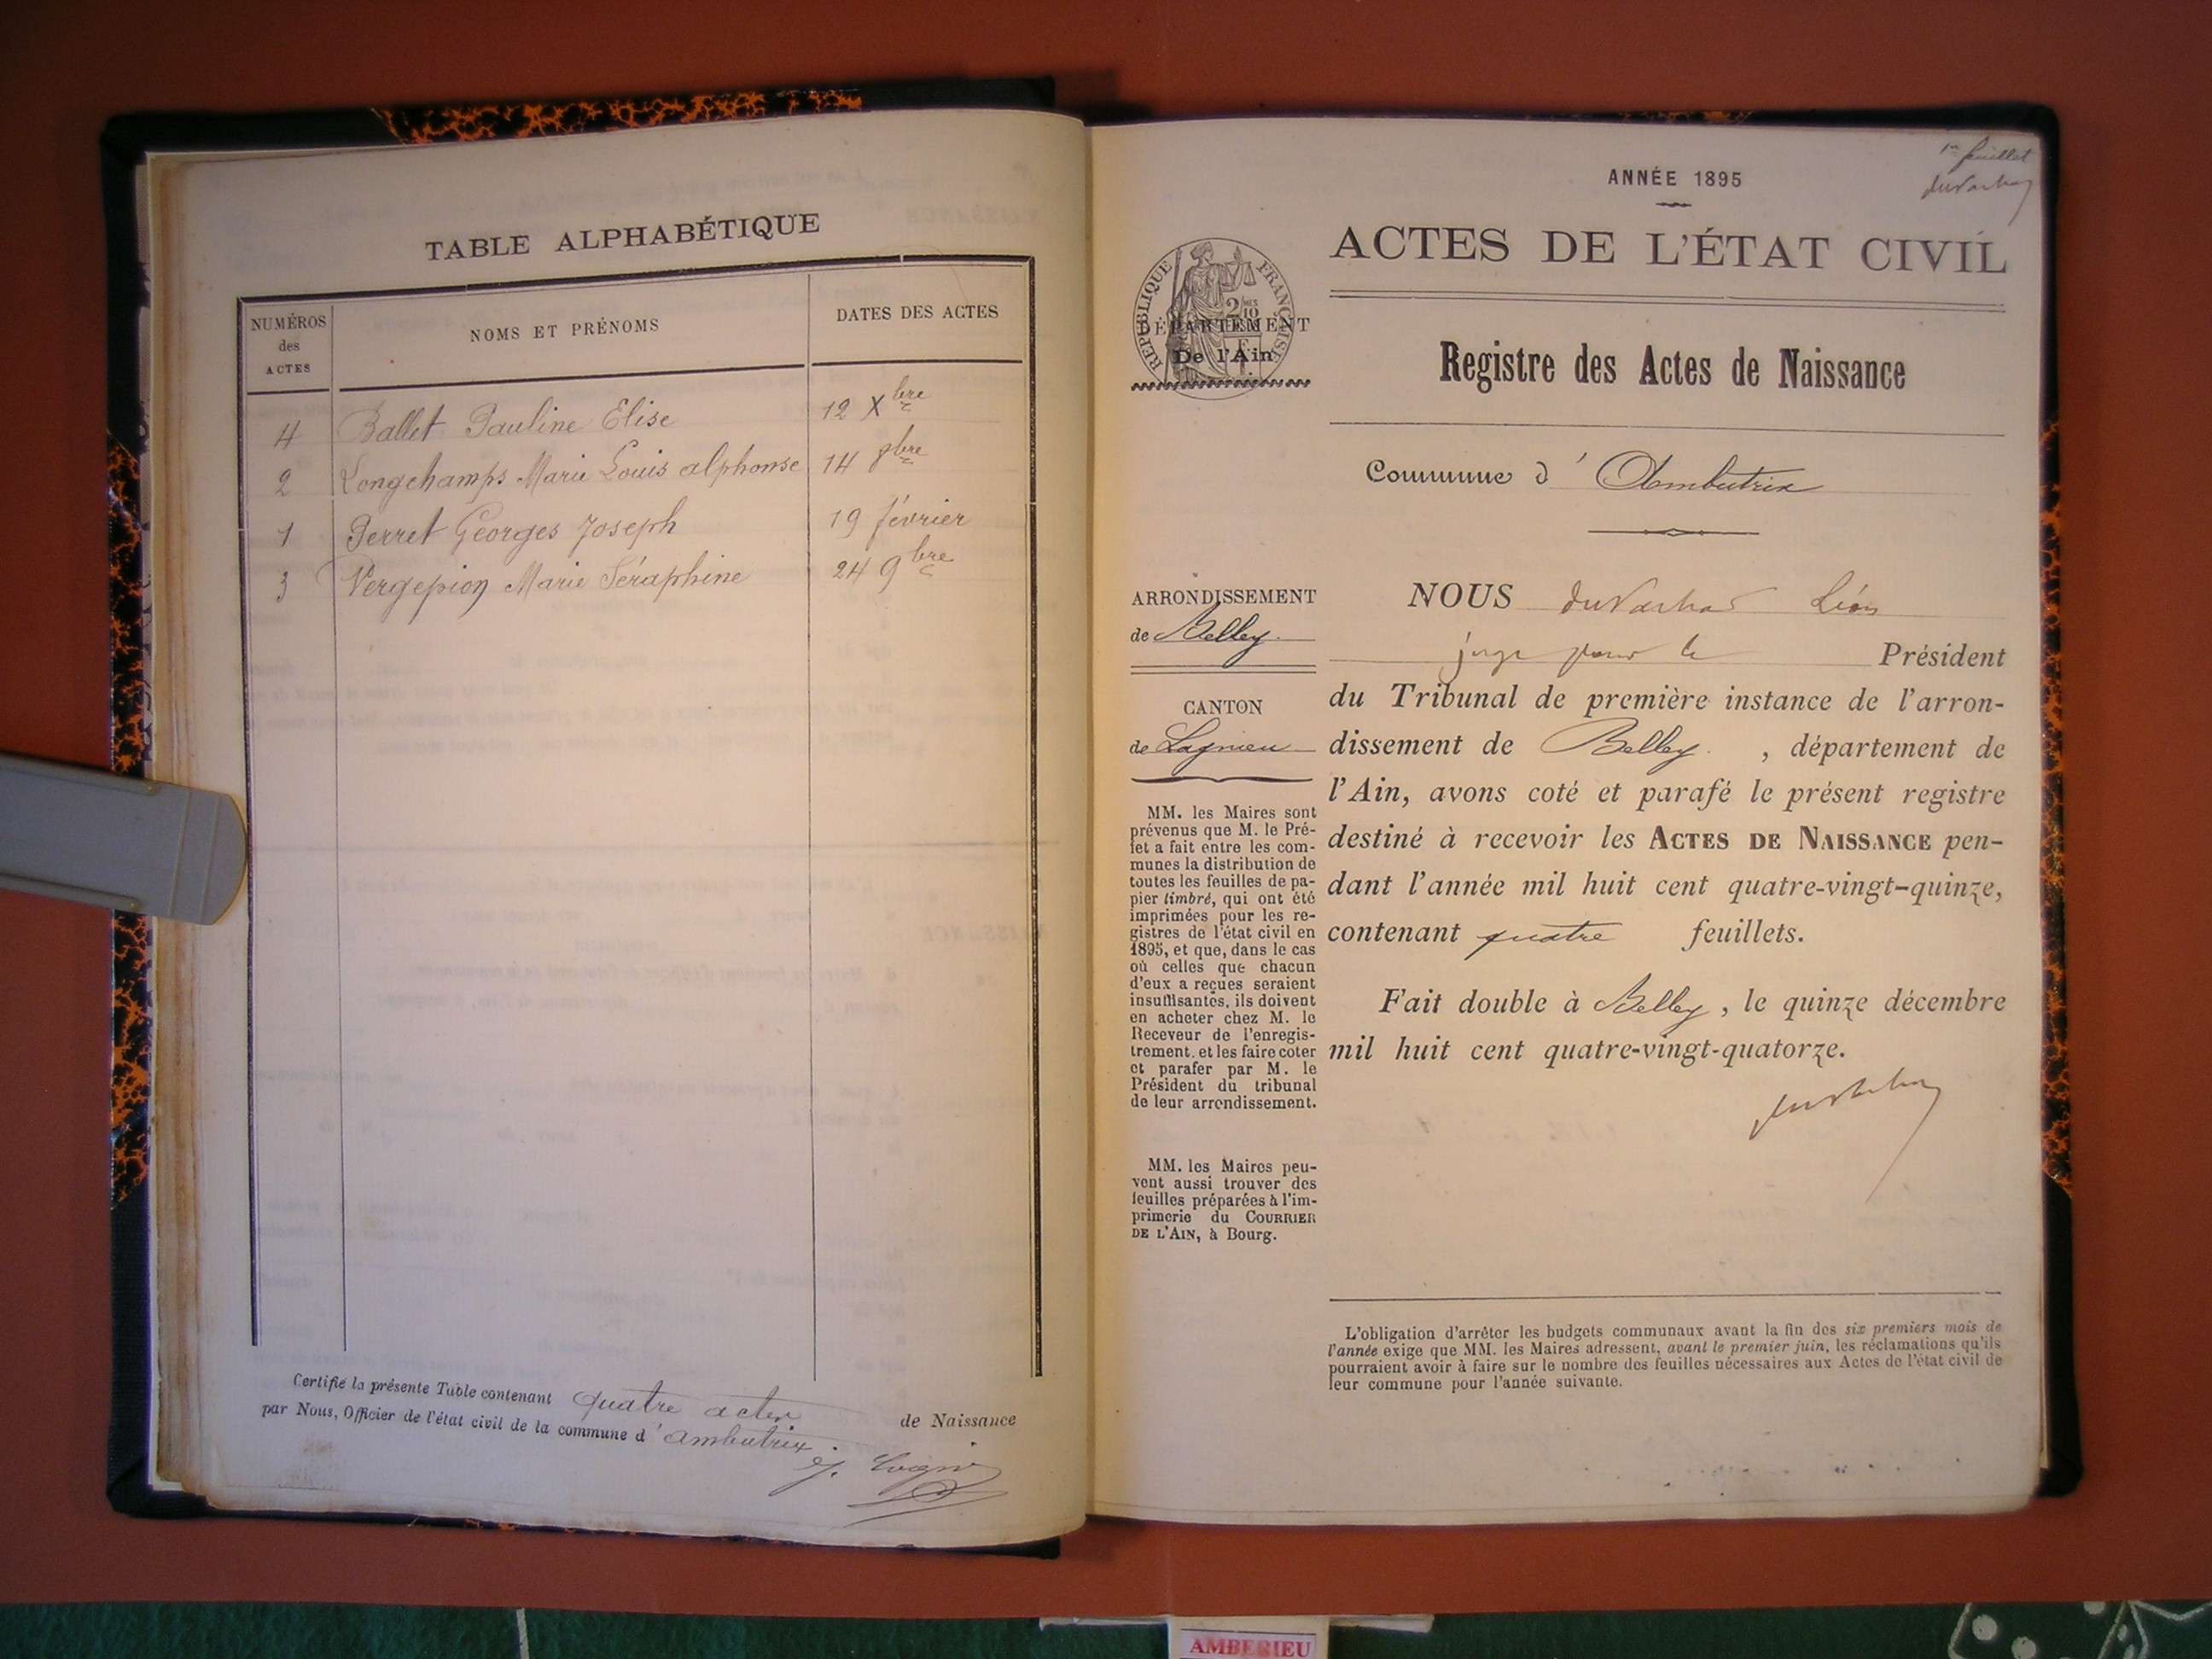 TABLE ALPHABÉTIQUE
NUMÉROS des ACTES
NOMS ET PRÉNOMS
DATES DES ACTES
4 Ballet Pauline Elise 12 Xbre
2 Longchamps Marie Louis alphonse 14 8bre
1 Perret Georges Joseph 19 février
3 Vergepion Marie Séraphine 24 9bre
Certifié la présente Table contenant quatre actes de Naissance
par Nous, Officier de l'état civil de la commune d'ambutrix.
1er feuillet
ANNÉE 1895
ACTES DE L'ÉTAT CIVIL
RÉPUBLIQUE FRANÇAISE
DÉPARTEMENT
De l'Ain
Registre des Actes de Naissance
Commune d'Ambutrix
ARRONDISSEMENT
de Belley.
CANTON
de Lagnieu
MM. les Maires sont
prévenus que M. le Pré-
fet a fait entre les com-
munes la distribution de
toutes les feuilles de pa-
pier timbré, qui ont été
imprimées pour les re-
gistres de l'état civil en
1895, et que, dans le cas
où celles que chacun
d'eux a reçues seraient
insuffisantes, ils doivent
en acheter chez M. le
Receveur de l'enregis-
trement, et les faire coter
et parafer par M. le
Président du tribunal
de leur arrondissement.
MM. les Maires peu-
vent aussi trouver des
feuilles préparées à l'im-
primerie du COURRIER
DE L'AIN, à Bourg.
NOUS Léon
juge pour le Président
du Tribunal de première instance de l'arron-
dissement de Belley. , département de
l'Ain, avons coté et parafé le présent registre
destiné à recevoir les ACTES DE NAISSANCE pen-
dant l'année mil huit cent quatre-vingt-quinze,
contenant quatre feuillets.
Fait double à Belley, le quinze décembre
mil huit cent quatre-vingt-quatorze.
L'obligation d'arrêter les budgets communaux avant la fin des six premiers mois de
l'année exige que MM. les Maires adressent, avant le premier juin, les réclamations qu'ils
pourraient avoir à faire sur le nombre des feuilles nécessaires aux Actes de l'état civil de
leur commune pour l'année suivante.
AMBERIEU